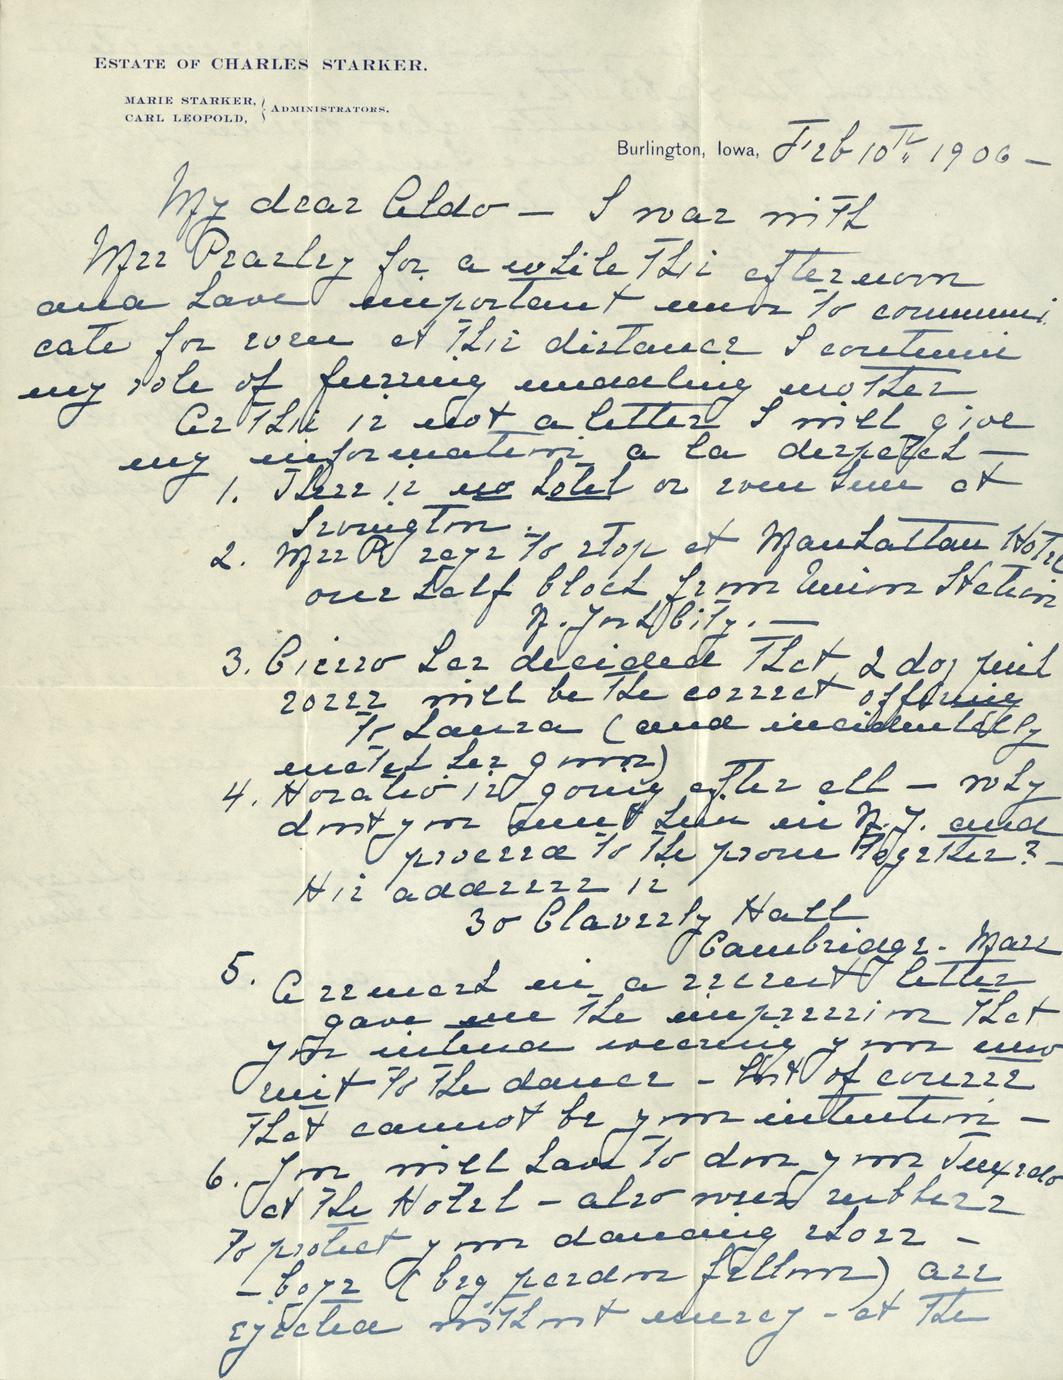 ESTATE OF CHARLES STARKER.
MARIE STARKER,
CARL LEOPOLD,
ADMINISTRATORS.
Burlington, Iowa, Feb 10th 1906 —
My dear Aldo — I was with
Mrs Pearley for a while this afternoon
and have important news to communi
cate for even at this distance I continue
my role of fussing meddling mother
As this is not a letter I will give
my information a la despatch —
1. There is no hotel or even inn at
Irvington.
2. Mrs P says to stop at Manhattan Hotel
one half block from Union Station
N. York City. —
3. has decided that 2 doz pink
roses will be the correct offering
to Laura (and incidentally
match her gown)
4. Horatio is going after all — why
dont you hunt him in N.Y. and
proceed to the prom together? —
His address is
30 Claverly Hall
Cambridge. Mass
5. A remark in a recent letter
gave me the impression that
you intend wearing your new
suit to the dance — but of course
that cannot be your intention —
6. You will have to don your Tuxedo
at the Hotel — also wear rubbers
to protect your dancing shoes —
— boys (beg pardon fellows) are
ejected without mercy — at the